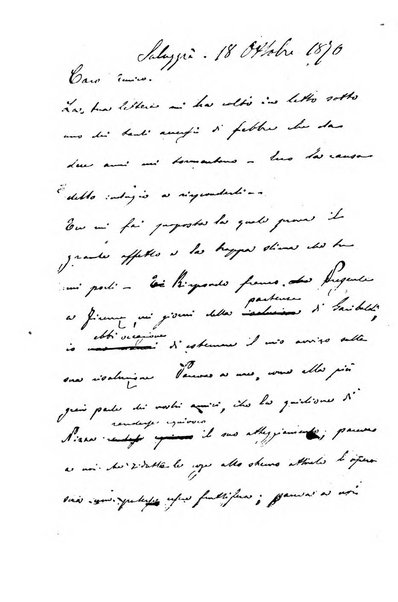 Saluggia. 18 Ottobre 1870
Caro amico.
La tua lettera mi ha colto in letto sotto
uno dei tanti accessi di febbre che da
due anni mi tormentano
detto indugio a risponderti.
Tu mi fai proposta la quale prova il
grande affetto e la troppa stima che tu
mi porti - Ti Rispondo franco. Presente
a Firenze, nei giorni della partenza di Garibaldi,
io ebbi occasione di esternare il mio avviso sulla
sua risoluzione Pareva a me, come alla più
gran parte dei nostri amici, che la quistione di
Nizza rendesse equivoco il suo atteggiamento; pareva
a noi che
; pareva a noi